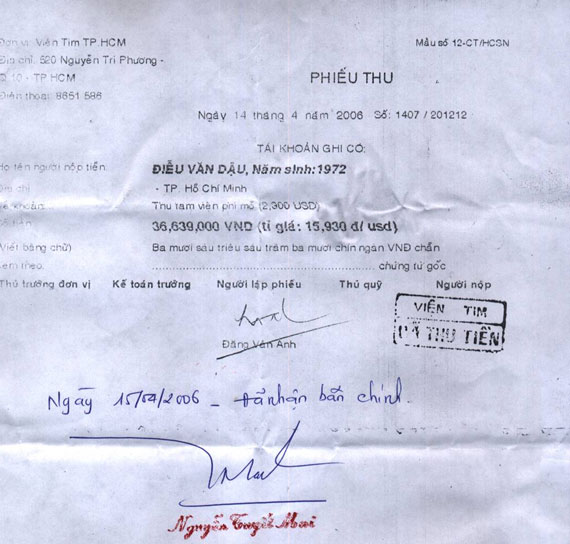 Đơn vị: Viện Tim TP.HCM
Mẫu số 12-CT/HCSN
Địa chỉ: 520 Nguyễn Tri Phương -
Q.10 - TP HCM
Điện thoại: 8651 586
PHIẾU THU
Ngày 14 tháng 4 năm 2006 Số: 1407 / 201212
TÀI KHOẢN GHI CÓ:
Họ tên người nộp tiền: ĐIỂU VĂN DẬU, Năm sinh:1972
Địa chỉ - TP. Hồ Chí Minh
Về khoản: Thu tạm viện phí mổ (2,300 USD)
Số tiền: 36,639,000 VNĐ (tỉ giá: 15,930 đ/ usd)
(Viết bằng chữ) Ba mươi sáu triệu sáu trăm ba mươi chín ngàn VNĐ chẵn
Kèm theo: ........................................ chứng từ gốc
Thủ trưởng đơn vị Kế toán trưởng Người lập phiếu Thủ quỹ Người nộp
VIỆN TIM
ĐÃ THU TIỀN
Đặng Vân Anh
Ngày 15/04/2006 - Đã nhận bản chính.
Nguyễn Tuyết Mai